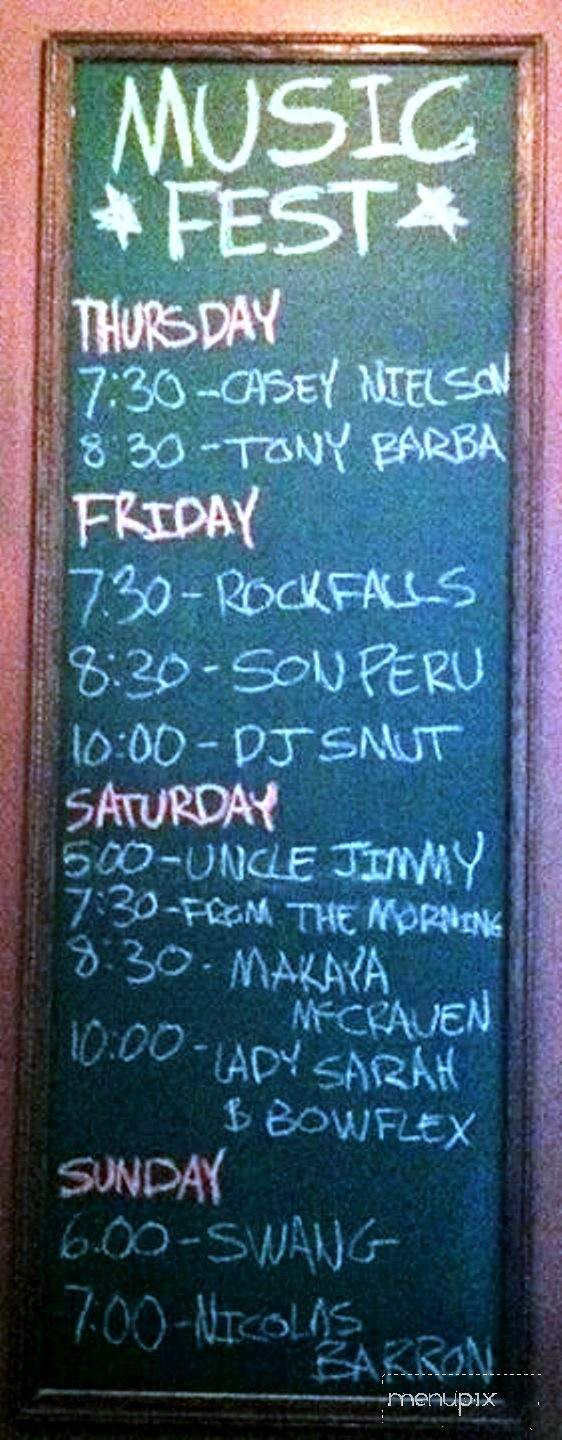 MUSIC
FEST
THURSDAY
7:30 - CASEY NIELSON
8:30 - TONY BARBA
FRIDAY
7:30 - ROCKFALLS
8:30 - SON PERU
10:00 - DJ SMUT
SATURDAY
5:00 - UNCLE JIMMY
7:30 - FROM THE MORNING
8:30 - MAKAYA
MCCRAVEN
10:00 - LADY SARAH
& BOWFLEX
SUNDAY
6:00 - SWANG
7:00 - NICOLAS
BARRON
menupix